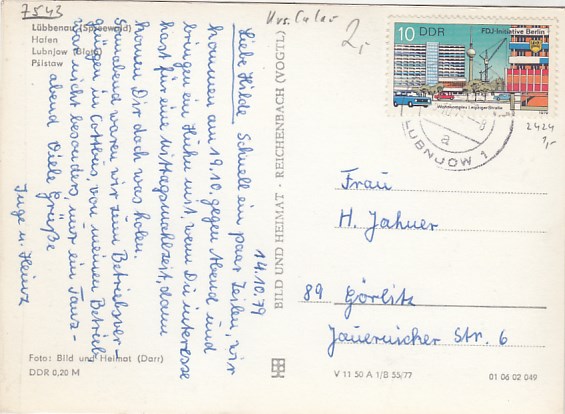 7543
Lübbenau (Spreewald)
Hafen
Lubnjow (Błota)
Pśistaw
14.10.79
Liebe Hilde Schnell ein paar Zeilen, wir
kommen am 19.10. gegen Abend und
bringen ein Huhn mit, wenn Du interesse
hast für eine Mittagsmahlzeit, dann
können Dir doch was holen.
Sonnabend waren wir zum Betriebsver-
gnügen in Cottbus, von meinen Betrieb
war nicht besonders, nur ein Tanz-
abend Viele Grüße
Inge u. Heinz
Foto: Bild und Heimat (Darr)
DDR 0,20 M
BILD UND HEIMAT · REICHENBACH (VOGTL)
2,-
10 DDR
FDJ-Initiative Berlin
Wohnkomplex Leipziger Straße
1979
LUBNJOW 1
a
2424
1,-
Frau
H. Jahner
89 Görlitz
Jauernicker Str. 6
V 11 50 A 1/B 55/77
01 06 02 049